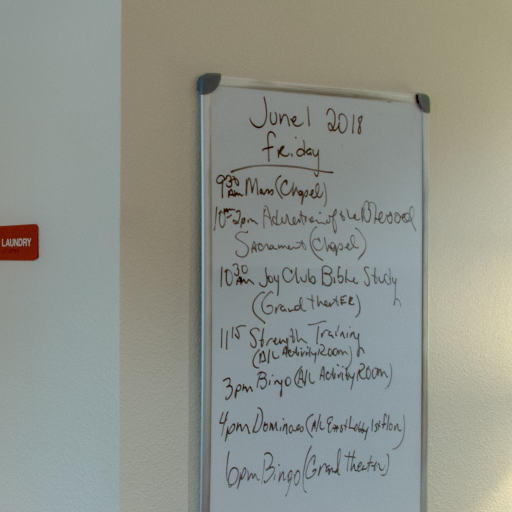 LAUNDRY
June 1 2018
Friday
9:30 Am Mass (Chapel)
10 Am - 2pm Adoration of the Blessed
Sacrament (Chapel)
10:30 Am Joy Club Bible Study
(Grand theatER)
11:15 Strength Training
(A/L Activity Room)
3pm Bingo (A/L Activity Room)
4pm Dominoes (A/L East Lobby 1st floor)
6pm Bingo (Grand Theater)